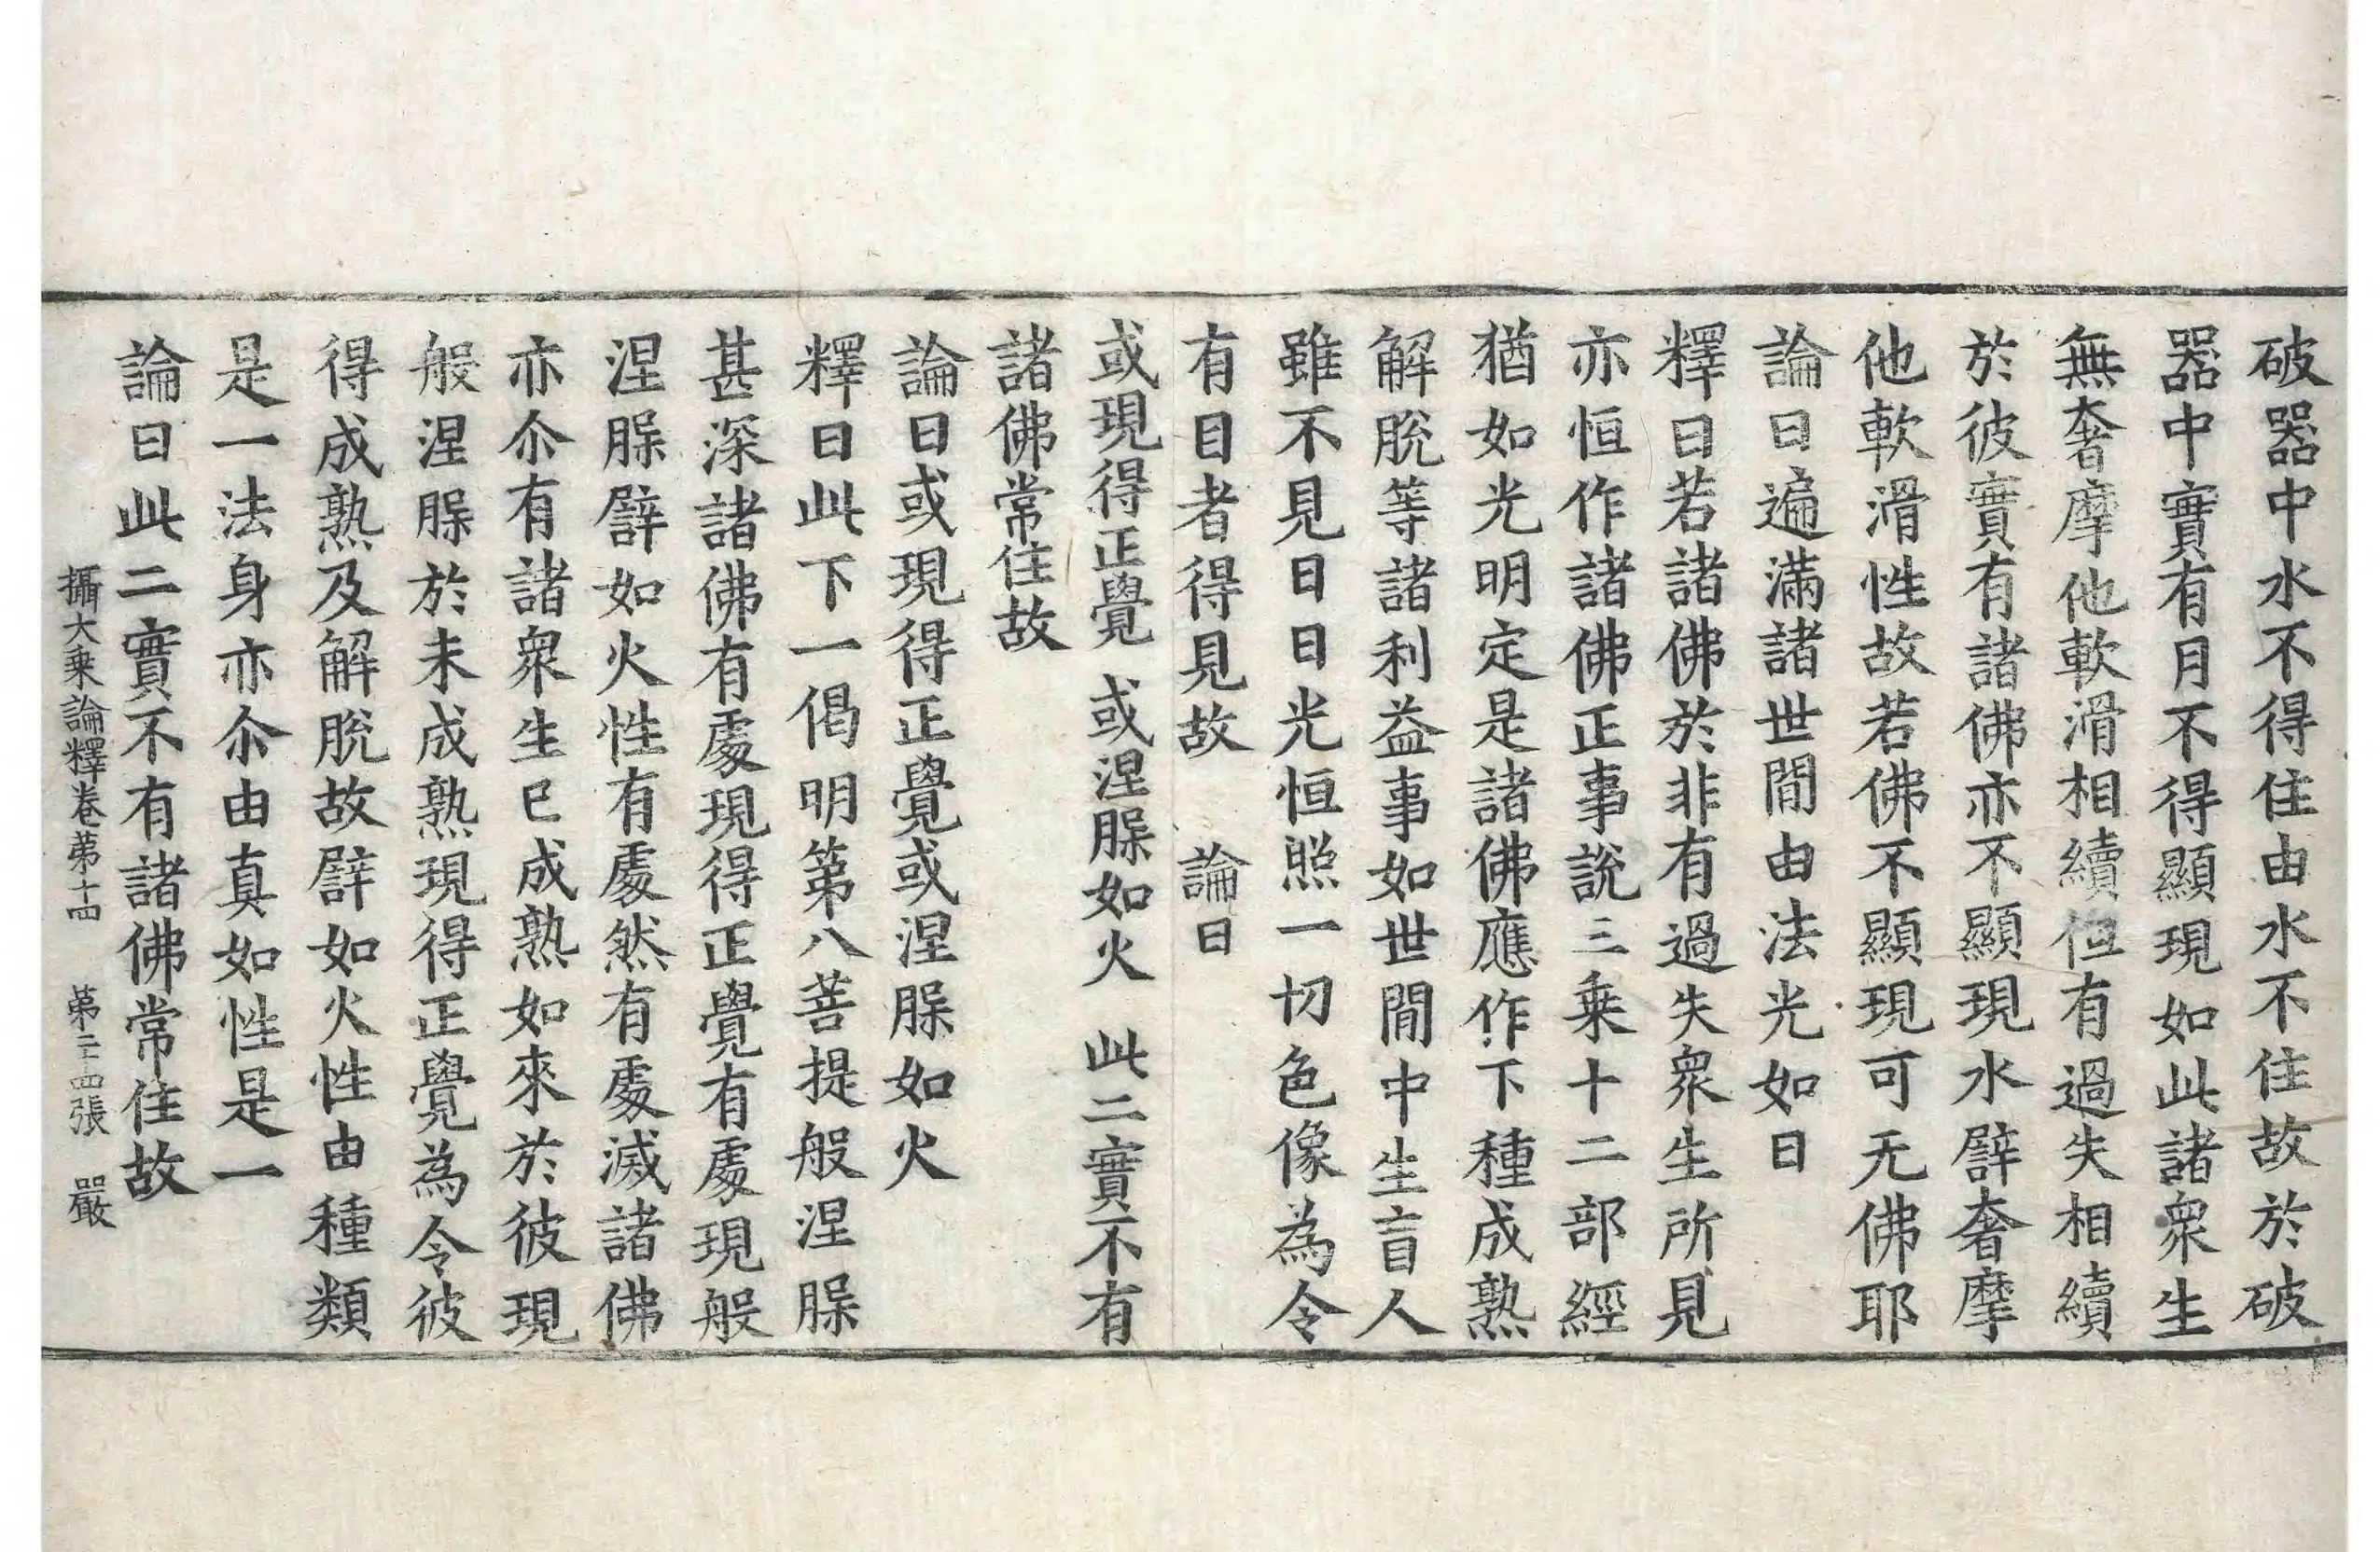 破器中水不得住由水不住故於破
器中實有月不得顯現如此諸衆生
無奢摩他軟滑相續但有過失相續
於彼實有諸佛亦不顯現水譬奢摩
他軟滑性故若佛不顯現可无佛耶
論曰遍滿諸世間由法光如日
釋曰若諸佛於非有過失衆生所見
亦恒作諸佛正事說三乘十二部經
猶如光明定是諸佛應作下種成熟
解脫等諸利益事如世間中生盲人
雖不見日日光恒照一切色像為令
有目者得見故　論曰
或現得正覺　或涅脲如火　此二實不有
諸佛常住故
論曰或現得正覺或涅脲如火
釋曰此下一偈明第八菩提般涅脲
甚深諸佛有處現得正覺有處現般
涅脲譬如火性有處然有處滅諸佛
亦尒有諸衆生已成熟如來於彼現
般涅脲於未成熟現得正覺為令彼
得成熟及解脫故譬如火性由種類
是一法身亦尒由真如性是一
論曰此二實不有諸佛常住故
攝大乘論釋卷苐十四　苐二十四張　嚴